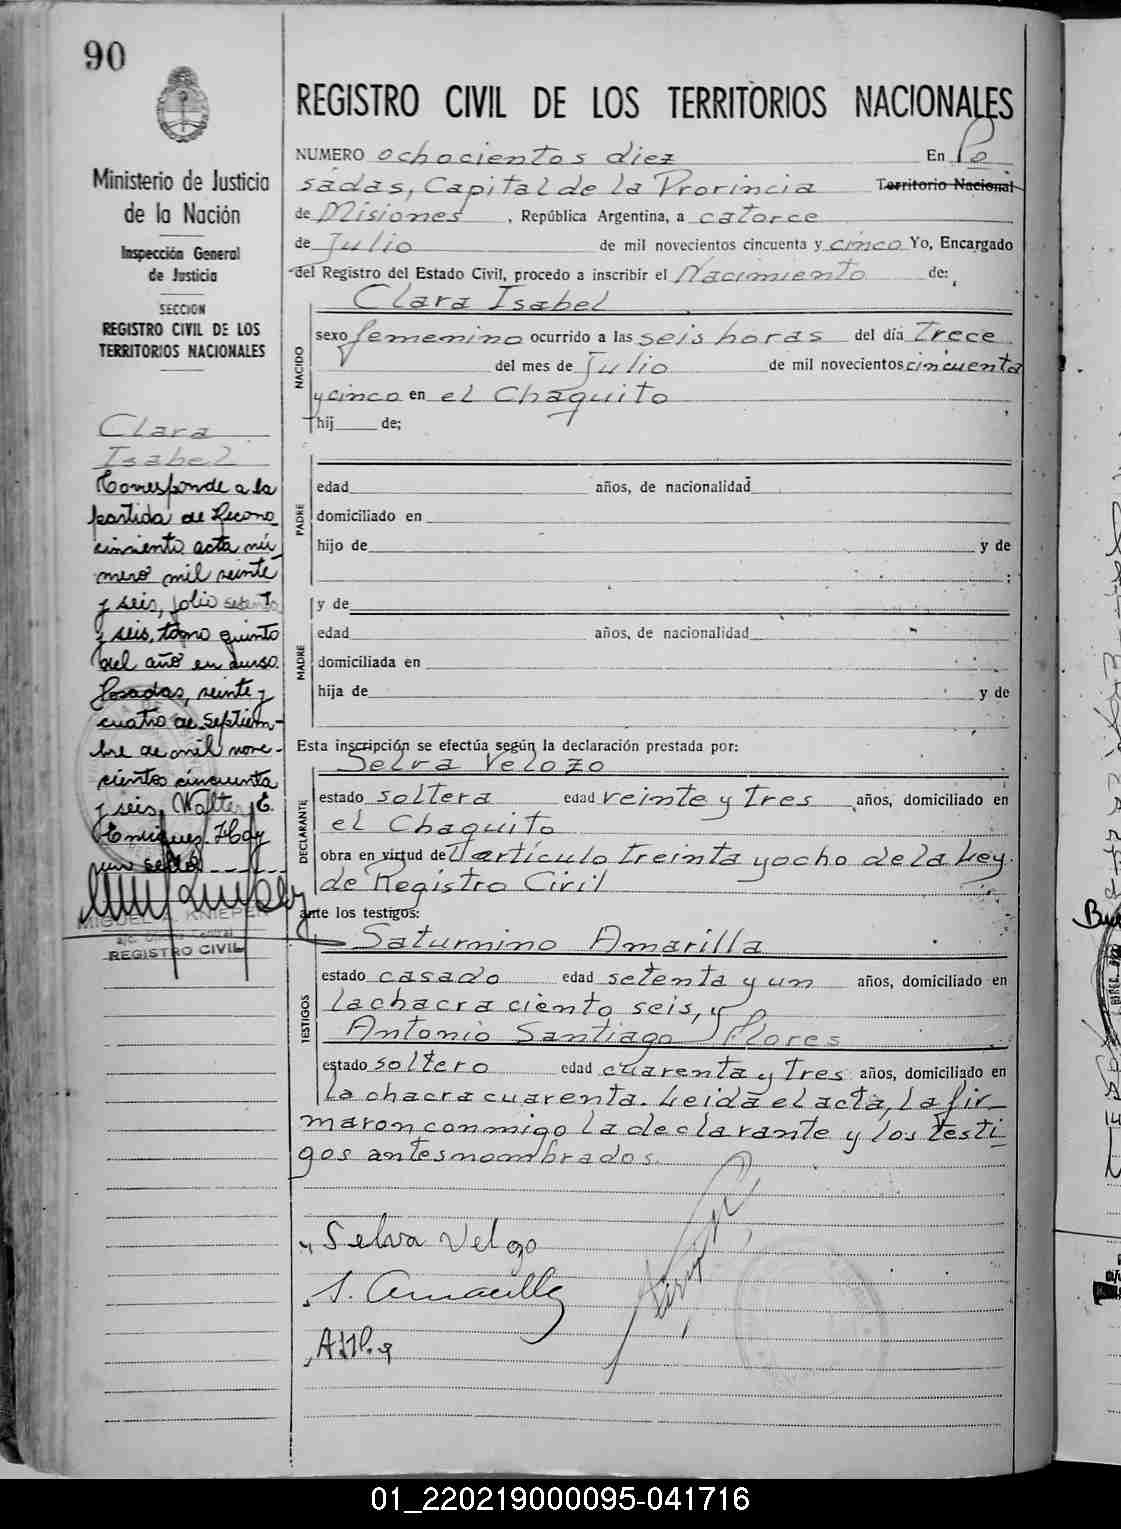 90
Ministerio de Justicia
de la Nación
Inspección General
de Justicia
SECCION
REGISTRO CIVIL DE LOS
TERRITORIOS NACIONALES
Clara
Isabel
Corresponde a la
partida de Recono
cimiento acta nú
mero mil veinte
y seis, folio setenta
y seis, tomo quinto
del año en curso.
Posadas, veinte y
cuatro de septiem-
bre de mil nove-
cientos cincuenta
y seis. Walter E.
Enriquez. Hay
un sello
MIGUEL A. KNIEPER
a/c. Oficina Central
REGISTRO CIVIL
REGISTRO CIVIL DE LOS TERRITORIOS NACIONALES
NUMERO ochocientos diez En Po
sadas, Capital de la Provincia Territorio Nacional
de Misiones, República Argentina, a catorce
de Julio de mil novecientos cincuenta y cinco Yo, Encargado
del Registro del Estado Civil, procedo a inscribir el Nacimiento de:
Clara Isabel
NACIDO
sexo femenino ocurrido a las seis horas del día Trece
del mes de Julio de mil novecientos cincuenta
y cinco en el Chaquito
hij de;
PADRE
edad años, de nacionalidad
domiciliado en
hijo de y de
;
y de
MADRE
edad años, de nacionalidad
domiciliada en
hija de y de
Esta inscripción se efectúa según la declaración prestada por:
Selva Velozo
DECLARANTE
estado soltera edad veinte y Tres años, domiciliado en
el Chaquito
obra en virtud del artículo treinta y ocho de la Ley
de Registro Civil
ante los testigos:
Saturnino Amarilla
TESTIGOS
estado casado edad setenta y un años, domiciliado en
la chacra ciento seis, y
Antonio Santiago Flores
estado soltero edad cuarenta y Tres años, domiciliado en
la chacra cuarenta. Leida el acta, la fir_
maron conmigo la declarante y los testi
gos antes nombrados.
Selva Velozo
S. Amarilla
01_220219000095-041716